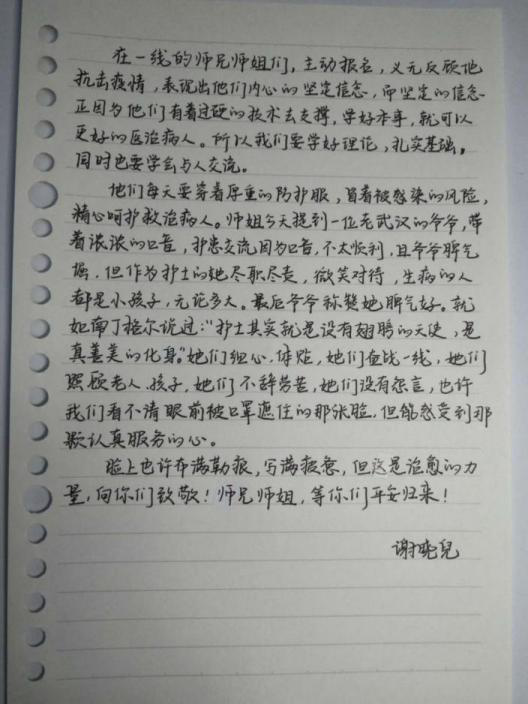 在一线的师兄师姐们，主动报名，义无反顾地
抗击疫情，表现出他们内心的坚定信念，而坚定的信念
正因为他们有着过硬的技术去支撑，学好本事，就可以
更好的医治病人。所以我们要学好理论，扎实基础。
同时也要学会与人交流。
他们每天要穿着厚重的防护服，冒着被感染的风险，
精心呵护救治病人。师姐今天提到一位老武汉的爷爷，带
着浓浓的口音，护患交流因为口音，不太顺利，且爷爷脾气
掘，但作为护士的她尽职尽责，微笑对待，生病的人
都是小孩子，无论多大。最后爷爷称赞她脾气好。就
如南丁格尔说过："护士其实就是没有翅膀的天使，是
真善美的化身。"她们细心、体贴，她们奋战一线，她们
照顾老人、孩子，她们不辞劳苦，她们没有怨言，也许
我们看不清眼前被口罩遮住的那张脸，但能感受到那
颗认真服务的心。
脸上也许布满勒痕，写满疲惫，但这是治愈的力
量，向你们致敬！师兄师姐，等你们平安归来！
谢晓兒